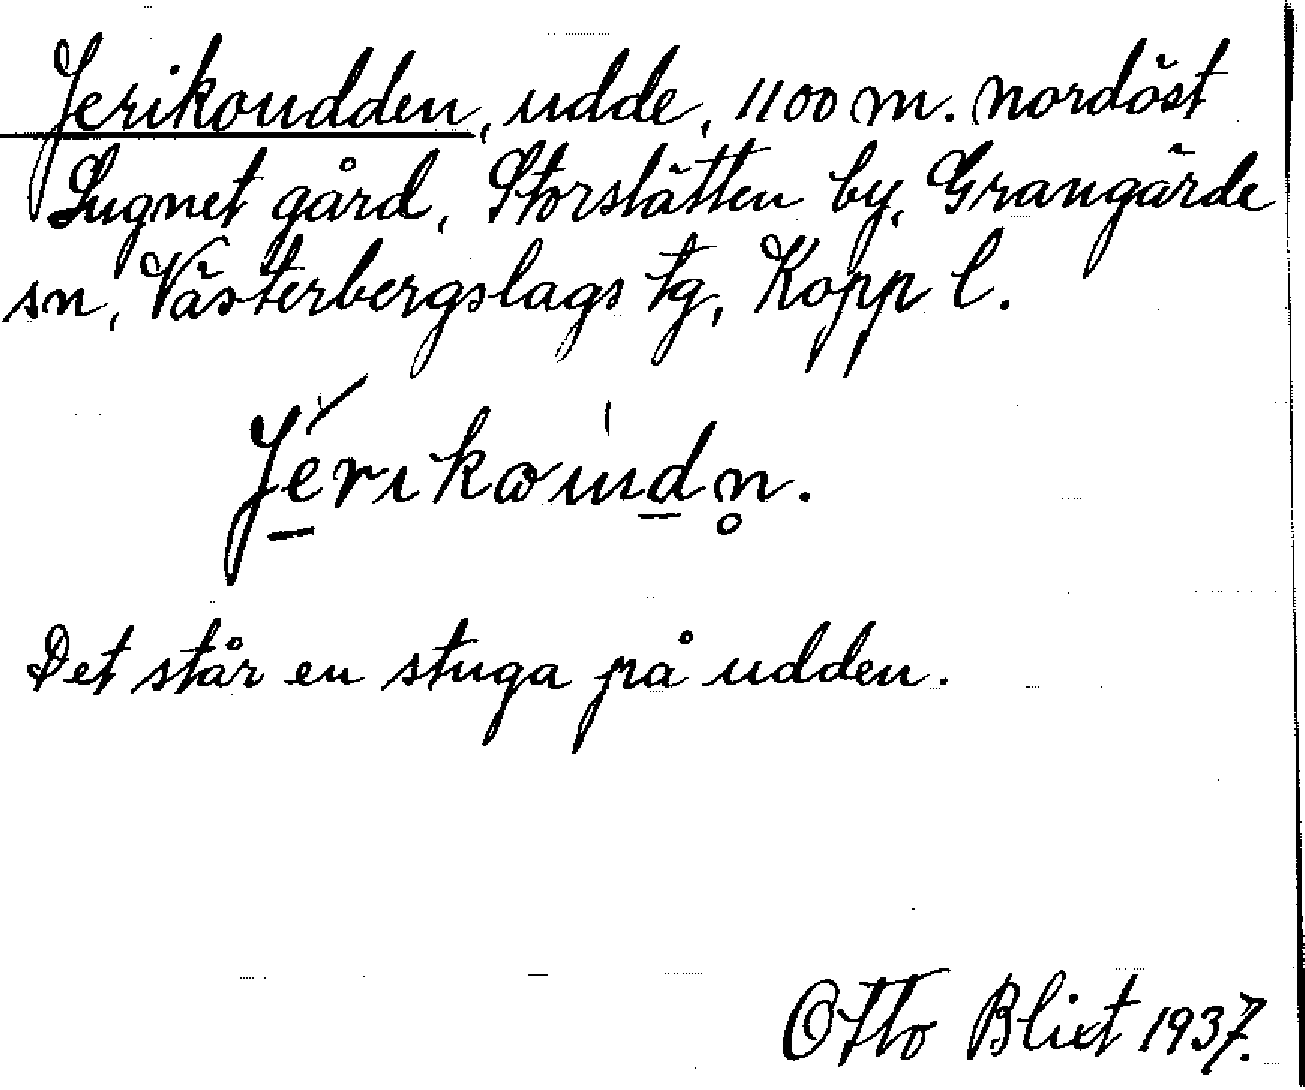 Jerikoudden, udde, 1100 m. nordöst
Lugnet gård, Storslätten by, Grangärde
sn, Västerbergslags tg, Kopp l.
Jerikωudn̥.
Det står en stuga på udden.
Otto Blixt 1937.